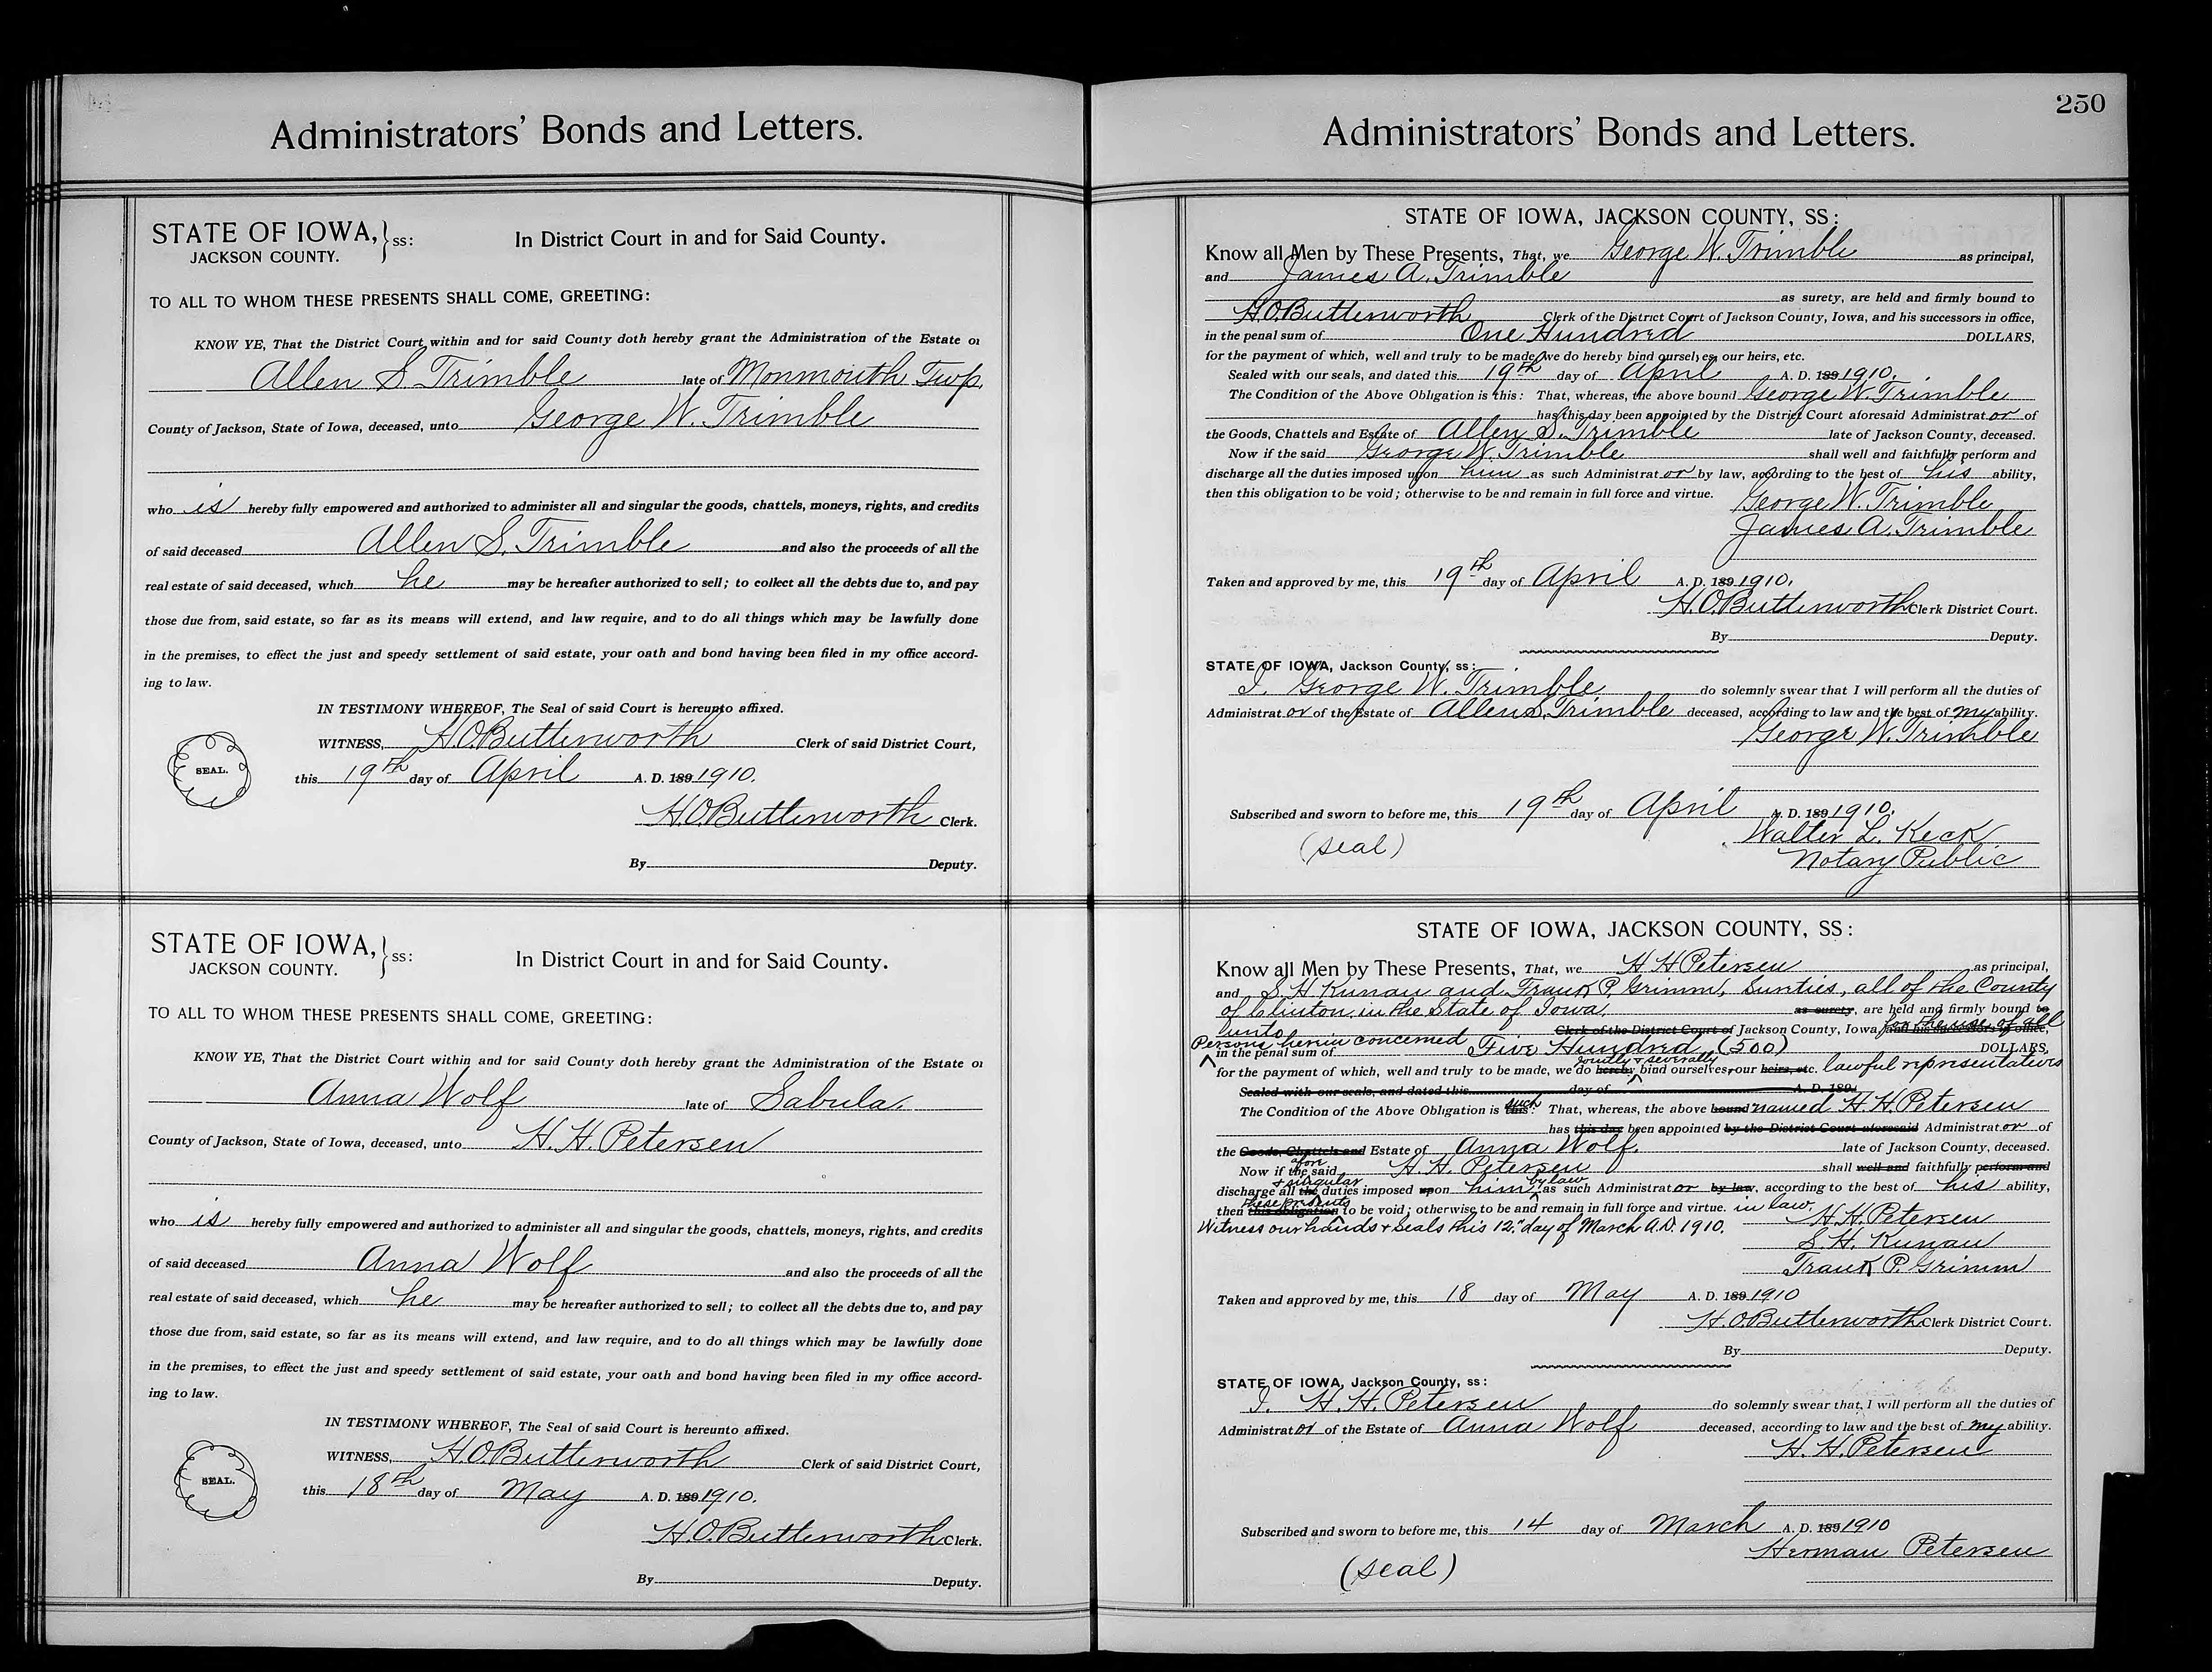 Administrators' Bonds and Letters.
STATE OF IOWA, } ss: In District Court in and for Said County.
JACKSON COUNTY.
TO ALL TO WHOM THESE PRESENTS SHALL COME, GREETING:
KNOW YE, That the District Court within and for said County doth hereby grant the Administration of the Estate of
Allen S Trimble late of Monmouth Twp.
County of Jackson, State of Iowa, deceased, unto George W. Trimble
who is hereby fully empowered and authorized to administer all and singular the goods, chattels, moneys, rights, and credits
of said deceased Allen S. Trimble and also the proceeds of all the
real estate of said deceased, which he may be hereafter authorized to sell; to collect all the debts due to, and pay
those due from, said estate, so far as its means will extend, and law require, and to do all things which may be lawfully done
in the premises, to effect the just and speedy settlement of said estate, your oath and bond having been filed in my office accord-
ing to law.
IN TESTIMONY WHEREOF, The Seal of said Court is hereunto affixed.
WITNESS, H.O. Butterworth Clerk of said District Court,
SEAL.
this 19th day of April A. D. 189 1910.
H.O. Butterworth Clerk.
By Deputy.
STATE OF IOWA, } ss: In District Court in and for Said County.
JACKSON COUNTY.
TO ALL TO WHOM THESE PRESENTS SHALL COME, GREETING:
KNOW YE, That the District Court within and for said County doth hereby grant the Administration of the Estate of
Anna Wolf late of Sabula.
County of Jackson, State of Iowa, deceased, unto H. H. Petersen
who is hereby fully empowered and authorized to administer all and singular the goods, chattels, moneys, rights, and credits
of said deceased Anna Wolf and also the proceeds of all the
real estate of said deceased, which he may be hereafter authorized to sell; to collect all the debts due to, and pay
those due from, said estate, so far as its means will extend, and law require, and to do all things which may be lawfully done
in the premises, to effect the just and speedy settlement of said estate, your oath and bond having been filed in my office accord-
ing to law.
IN TESTIMONY WHEREOF, The Seal of said Court is hereunto affixed.
WITNESS, H.O. Butterworth Clerk of said District Court,
SEAL.
this 18th day of May A. D. 189 1910.
H.O. Butterworth Clerk.
By Deputy.
250
Administrators' Bonds and Letters.
STATE OF IOWA, JACKSON COUNTY, SS:
Know all Men by These Presents, That, we George W. Trimble as principal,
and James A. Trimble
as surety, are held and firmly bound to
H.O. Butterworth Clerk of the District Court of Jackson County, Iowa, and his successors in office,
in the penal sum of One Hundred DOLLARS,
for the payment of which, well and truly to be made, we do hereby bind ourselves, our heirs, etc.
Sealed with our seals, and dated this 19th day of April A. D. 189 1910.
The Condition of the Above Obligation is this: That, whereas, the above bound George W. Trimble
has this day been appointed by the District Court aforesaid Administrator of
the Goods, Chattels and Estate of Allen S. Trimble late of Jackson County, deceased.
Now if the said George W. Trimble shall well and faithfully perform and
discharge all the duties imposed upon him as such Administrator by law, according to the best of his ability,
then this obligation to be void; otherwise to be and remain in full force and virtue. George W. Trimble
James A. Trimble
Taken and approved by me, this 19th day of April A. D. 189 1910.
H.O. Butterworth Clerk District Court.
By Deputy.
STATE OF IOWA, Jackson County, ss:
I. George W. Trimble do solemnly swear that I will perform all the duties of
Administrator of the Estate of Allen S. Trimble deceased, according to law and the best of my ability.
George W. Trimble
Subscribed and sworn to before me, this 19th day of April A. D. 189 1910.
Walter L. Keck
(seal) Notary Public
STATE OF IOWA, JACKSON COUNTY, SS:
Know all Men by These Presents, That, we H H Petersen as principal,
and S. H. Kunau and Frank P. Grimm, Surties, all of the County
of Clinton, in the State of Iowa, as surety, are held and firmly bound to
unto Clerk of the District Court of Jackson County, Iowa, and his successors in office, for the use of all
Persons herin concerned
in the penal sum of Five Hundred (500) DOLLARS,
jointly & severally
for the payment of which, well and truly to be made, we do hereby bind ourselves, our heirs, etc. lawful representatives
Sealed with our seals, and dated this day of A. D. 189
The Condition of the Above Obligation is this: such That, whereas, the above bound named H. H. Petersen
has this day been appointed by the District Court aforesaid Administrator of
the Goods, Chattels and Estate of Anna Wolf. late of Jackson County, deceased.
Now if the afore said H. H. Petersen shall well and faithfully perform and
& singular by law
discharge all the duties imposed upon him as such Administrator by law, according to the best of his ability,
these presents
then this obligation to be void; otherwise to be and remain in full force and virtue. in law.
H. H. Petersen
Witness our hands & Seals this 12" day of March A.D. 1910.
S. H. Kunau
Frank P. Grimm
Taken and approved by me, this 18 day of May A. D. 189 1910
H.O. Butterworth Clerk District Court.
By Deputy.
STATE OF IOWA, Jackson County, ss:
I. H. H. Petersen do solemnly swear that I will perform all the duties of
Administrator of the Estate of Anna Wolf deceased, according to law and the best of my ability.
H. H. Petersen
Subscribed and sworn to before me, this 14 day of March A. D. 189 1910
Herman Petersen
(seal)